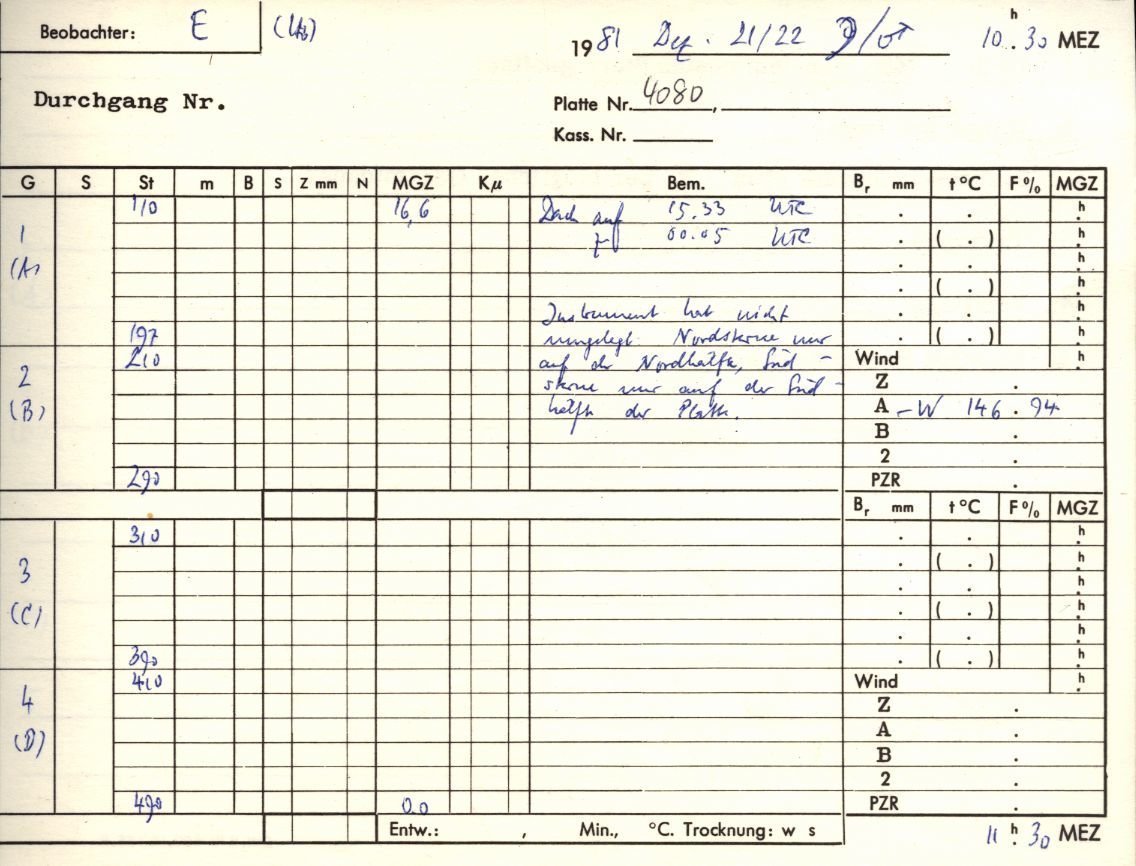 Beobachter: E
1981 Dez. 21/22 10h.30 MEZ
Durchgang Nr.
Platte Nr. 4080,
Kass. Nr.
G S St m B S Z mm N MGZ Kμ Bem. Br mm t °C F % MGZ
110 16,6 Dach auf 15.33 UTC . . h
1 00.05 UTC . ( . ) h
(A) . . h
. ( . ) h
Instrument hat nicht . . h
197 umgelegt Nordsterne nur . ( . ) h
210 auf der Nordhälfte, Süd- Wind h
2 sterne nur auf der Süd- Z .
(B) hälfte der Platte. A -W 146.94
B .
2 .
290 PZR .
Br mm t °C F % MGZ
310 . . h
. ( . ) h
3 . . h
(C) . ( . ) h
. . h
390 . ( . ) h
410 Wind h
4 Z .
(D) A .
B .
2 .
490 0.0 PZR .
Entw.: , Min., °C. Trocknung: w s 11h.30 MEZ